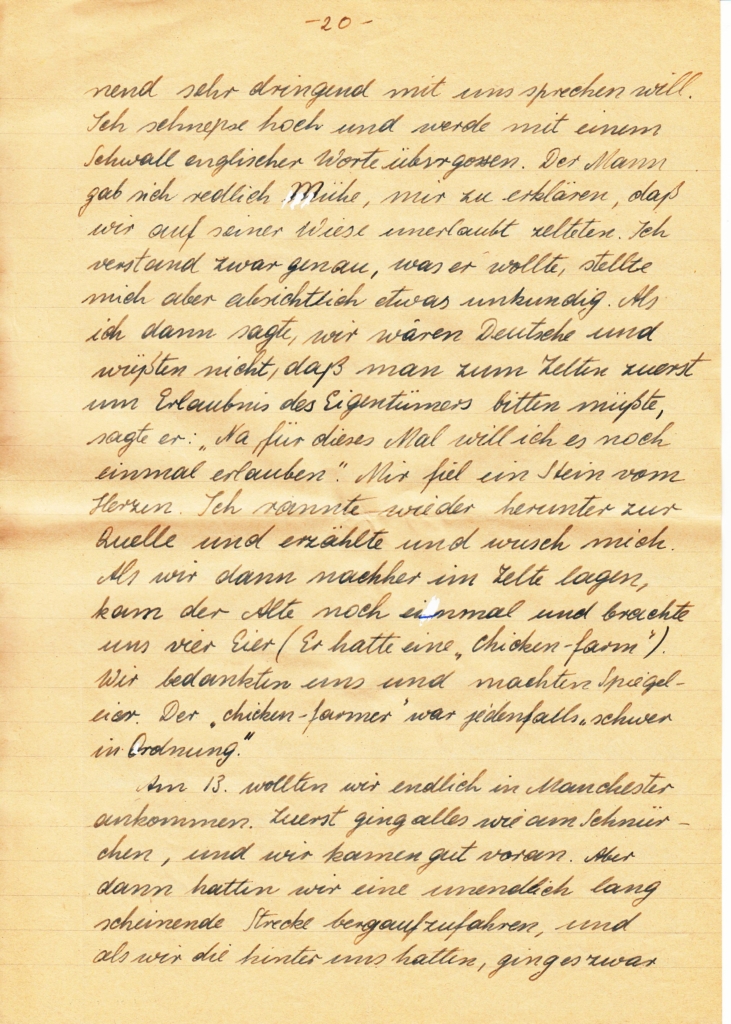 -20-
nend sehr dringend mit uns sprechen will.
Ich schnepse hoch und werde mit einem
Schwall englischer Worte übergossen. Der Mann
gab sich redlich Mühe, mir zu erklären, daß
wir auf seiner Wiese unerlaubt zelteten. Ich
verstand zwar genau, was er wollte, stellte
mich aber absichtlich etwas unkundig. Als
ich dann sagte, wir wären Deutsche und
wüßten nicht, daß man zum Zelten zuerst
um Erlaubnis des Eigentümers bitten müßte,
sagte er: „Na für dieses Mal will ich es noch
einmal erlauben". Mir fiel ein Stein vom
Herzen. Ich rannte wieder herunter zur
Quelle und erzählte und wusch mich.
Als wir dann nachher im Zelte lagen,
kam der Alte noch einmal und brachte
uns vier Eier (Er hatte eine „chicken-farm").
Wir bedankten uns und machten Spiegel-
eier. Der „chicken-farmer" war jedenfalls „schwer
in Ordnung".
Am 13. wollten wir endlich in Manchester
ankommen. Zuerst ging alles wie am Schnür-
chen, und wir kamen gut voran. Aber
dann hatten wir eine unendlich lang
scheinende Strecke bergaufzufahren, und
als wir die hinter uns hatten, ging es zwar